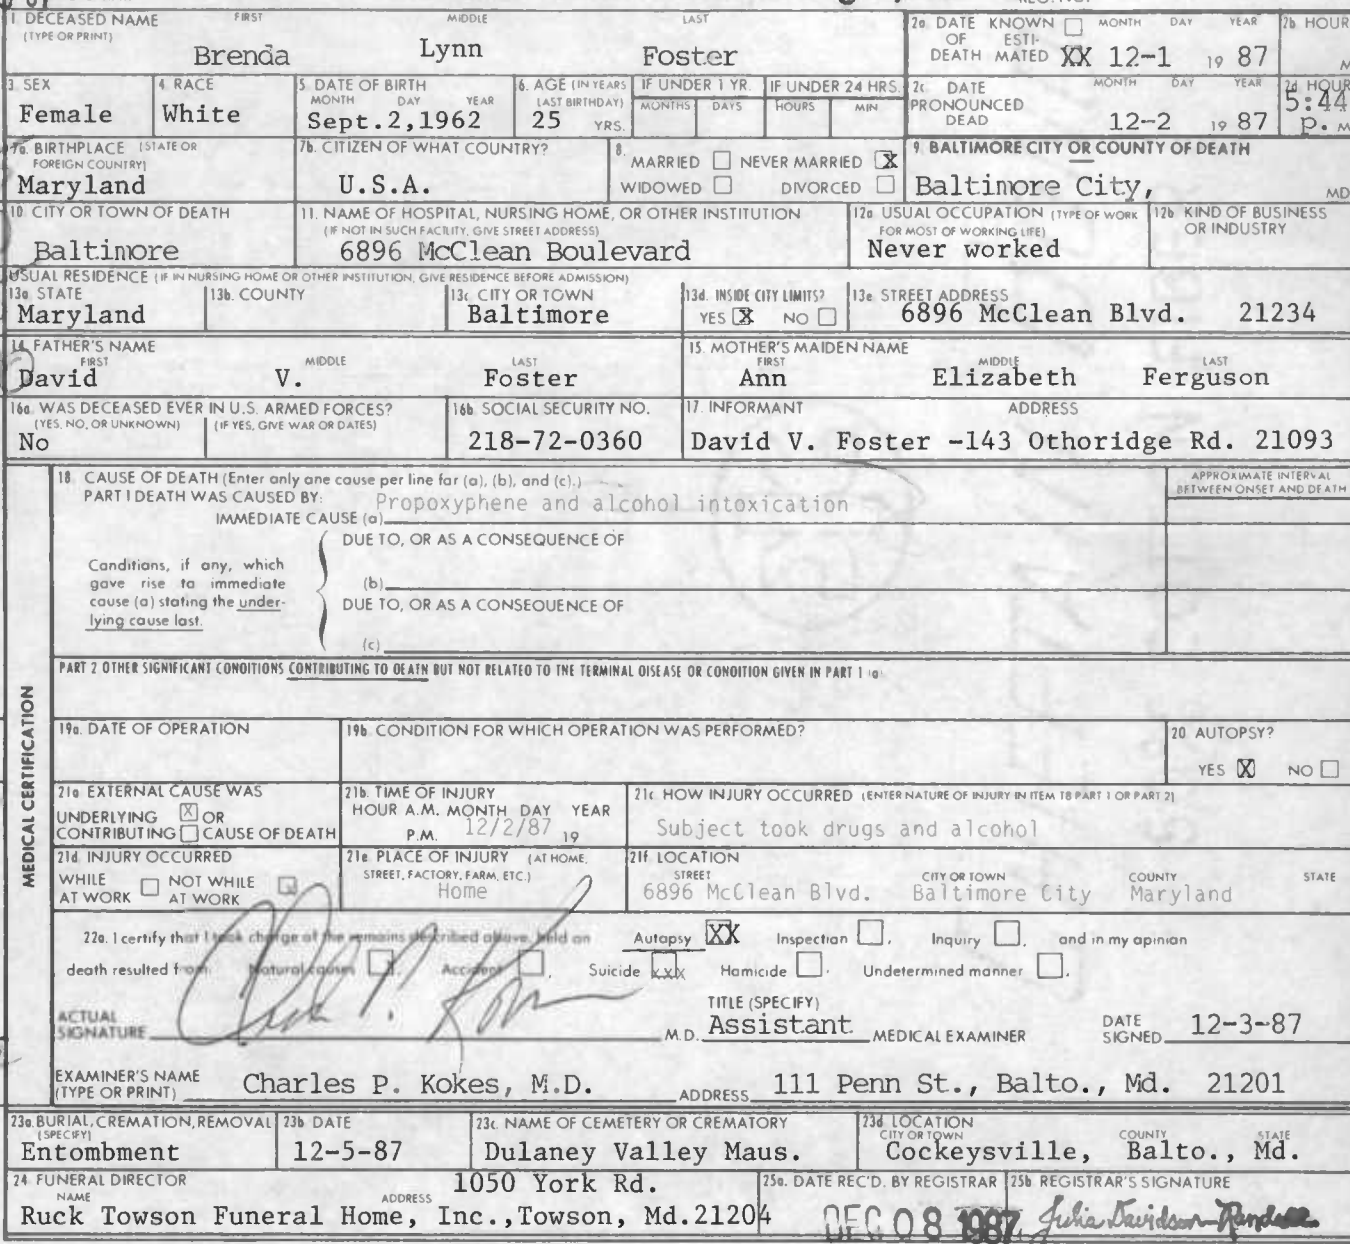 1 DECEASED NAME FIRST MIDDLE LAST
(TYPE OR PRINT)
Brenda Lynn Foster
2a. DATE KNOWN ☐ MONTH DAY YEAR
OF ESTI-
DEATH MATED XX 12-1 19 87
2b HOUR
M
3 SEX
Female
4 RACE
White
5 DATE OF BIRTH
MONTH DAY YEAR
Sept.2,1962
6. AGE (IN YEARS
LAST BIRTHDAY)
25 YRS.
IF UNDER 1 YR.
MONTHS DAYS
IF UNDER 24 HRS.
HOURS MIN
2c DATE MONTH DAY YEAR
PRONOUNCED
DEAD 12-2 19 87
2d HOUR
5:44
p. M
7a. BIRTHPLACE (STATE OR
FOREIGN COUNTRY)
Maryland
7b. CITIZEN OF WHAT COUNTRY?
U.S.A.
8.
MARRIED ☐ NEVER MARRIED ☒
WIDOWED ☐ DIVORCED ☐
9. BALTIMORE CITY OR COUNTY OF DEATH
Baltimore City, MD
10. CITY OR TOWN OF DEATH
Baltimore
11. NAME OF HOSPITAL, NURSING HOME, OR OTHER INSTITUTION
(IF NOT IN SUCH FACILITY, GIVE STREET ADDRESS)
6896 McClean Boulevard
12a USUAL OCCUPATION (TYPE OF WORK
FOR MOST OF WORKING LIFE)
Never worked
12b KIND OF BUSINESS
OR INDUSTRY
USUAL RESIDENCE (IF IN NURSING HOME OR OTHER INSTITUTION, GIVE RESIDENCE BEFORE ADMISSION)
13a STATE
Maryland
13b. COUNTY
13c CITY OR TOWN
Baltimore
13d. INSIDE CITY LIMITS?
YES ☒ NO ☐
13e STREET ADDRESS
6896 McClean Blvd. 21234
14. FATHER'S NAME
FIRST MIDDLE LAST
David V. Foster
15. MOTHER'S MAIDEN NAME
FIRST MIDDLE LAST
Ann Elizabeth Ferguson
16a WAS DECEASED EVER IN U.S. ARMED FORCES?
(YES, NO, OR UNKNOWN) (IF YES, GIVE WAR OR DATES)
No
16b SOCIAL SECURITY NO.
218-72-0360
17. INFORMANT ADDRESS
David V. Foster -143 Othoridge Rd. 21093
MEDICAL CERTIFICATION
18 CAUSE OF DEATH (Enter only one cause per line for (a), (b), and (c).)
PART I DEATH WAS CAUSED BY:
IMMEDIATE CAUSE (a) Propoxyphene and alcohol intoxication
APPROXIMATE INTERVAL
BETWEEN ONSET AND DEATH
DUE TO, OR AS A CONSEQUENCE OF
Conditions, if any, which
gave rise to immediate
cause (a) stating the under-
lying cause last.
(b)
DUE TO, OR AS A CONSEQUENCE OF
(c)
PART 2 OTHER SIGNIFICANT CONDITIONS CONTRIBUTING TO DEATH BUT NOT RELATED TO THE TERMINAL DISEASE OR CONDITION GIVEN IN PART 1 (a)
19a. DATE OF OPERATION
19b. CONDITION FOR WHICH OPERATION WAS PERFORMED?
20 AUTOPSY?
YES ☒ NO ☐
21a EXTERNAL CAUSE WAS
UNDERLYING ☒ OR
CONTRIBUTING ☐ CAUSE OF DEATH
21b. TIME OF INJURY
HOUR A.M. MONTH DAY YEAR
P.M. 12/2/87 19
21c HOW INJURY OCCURRED (ENTER NATURE OF INJURY IN ITEM 18 PART 1 OR PART 2)
Subject took drugs and alcohol
21d INJURY OCCURRED
WHILE AT WORK ☐ NOT WHILE AT WORK ☒
21e PLACE OF INJURY (AT HOME,
STREET, FACTORY, FARM, ETC.)
Home
21f LOCATION
STREET CITY OR TOWN COUNTY STATE
6896 McClean Blvd. Baltimore City Maryland
22a. I certify that I took charge of the remains described above, held an Autopsy XX Inspection ☐, Inquiry ☐, and in my opinion
death resulted from Natural causes ☐, Accident ☐, Suicide xxx Homicide ☐. Undetermined manner ☐.
ACTUAL
SIGNATURE M.D.
TITLE (SPECIFY)
Assistant MEDICAL EXAMINER
DATE
SIGNED 12-3-87
EXAMINER'S NAME
(TYPE OR PRINT) Charles P. Kokes, M.D. ADDRESS 111 Penn St., Balto., Md. 21201
23a. BURIAL, CREMATION, REMOVAL
(SPECIFY)
Entombment
23b DATE
12-5-87
23c NAME OF CEMETERY OR CREMATORY
Dulaney Valley Maus.
23d LOCATION
CITY OR TOWN COUNTY STATE
Cockeysville, Balto., Md.
24 FUNERAL DIRECTOR
NAME ADDRESS 1050 York Rd.
Ruck Towson Funeral Home, Inc.,Towson, Md.21204
25a. DATE REC'D. BY REGISTRAR
DEC 08 1987
25b REGISTRAR'S SIGNATURE
Julia Davidson-Randall